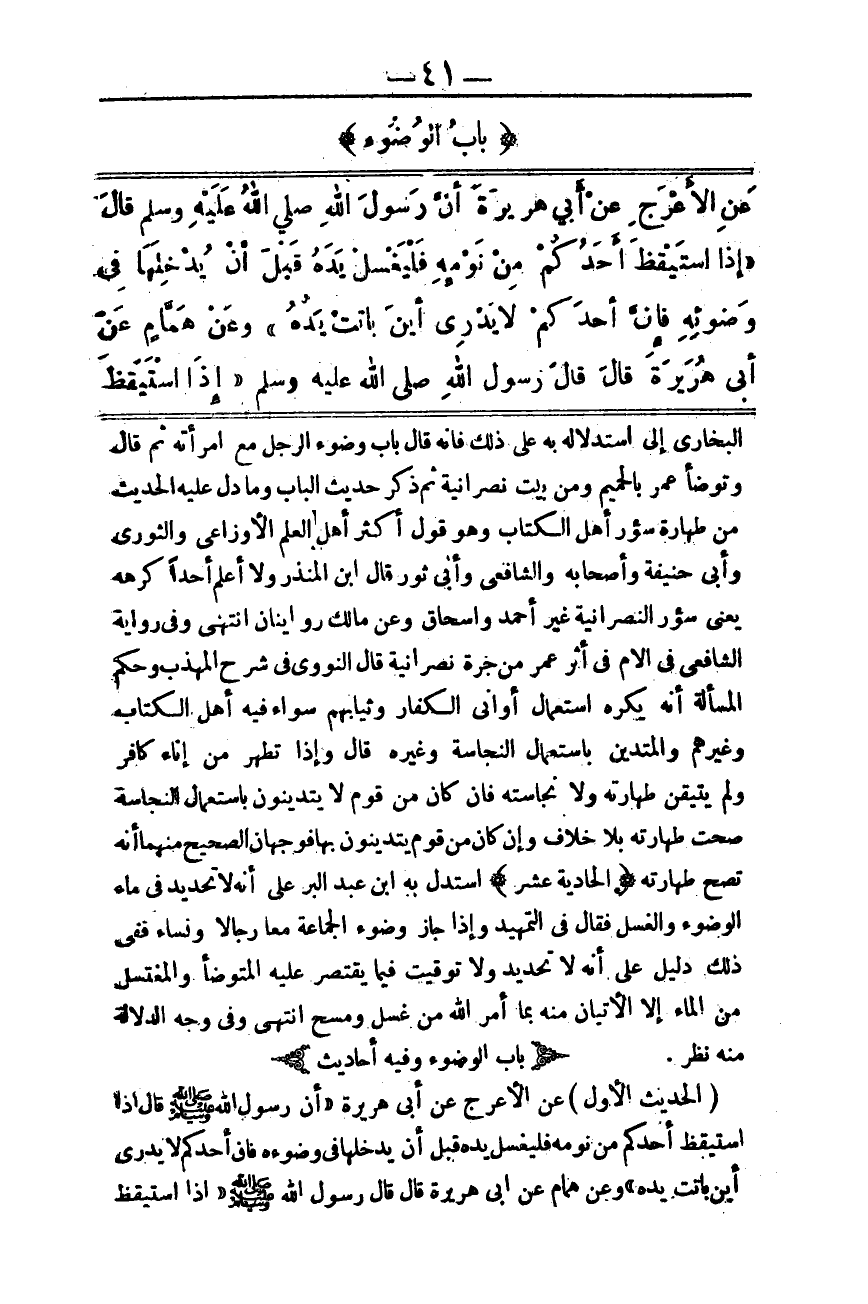 — ٤١ —
﴿ بابُ الوُضُوء ﴾
عَنِ الأَعْرَجِ عنْ أَبي هريرَةَ أنَّ رَسولَ اللهِ صلي اللهُ عَلَيْهِ وسلم قالَ
«إذا استَيْقظَ أَحَدُكُمْ مِنْ نَوْمِهِ فَلْيَغْسلْ يَدَهُ قَبْلَ أنْ يُدْخِلَهَا فِى
وَضوئِهِ فإِنَّ أحدَكمْ لايَدْرِى أينَ باتتْ يَدُهُ» وعَنْ هَمَّامٍ عَنْ
أبى هُرَيرَةَ قالَ قالَ رَسول اللهِ صلى الله عليه وسلم «إِذَا اسْتَيْقَظَ
البخارى إلى استدلاله به على ذلك فانه قال باب وضوء الرجل مع امرأته ثم قال
وتوضأ عمر بالحميم ومن بيت نصرانية ثم ذكر حديث الباب وما دل عليه الحديث
من طهارة سؤر أهل الكتاب وهو قول أكثر أهل العلم الأوزاعى والثورى
وأبى حنيفة وأصحابه والشافعى وأبى ثور قال ابن المنذر ولا أعلم أحداً كرهه
يعنى سؤر النصرانية غير أحمد واسحاق وعن مالك روايتان انتهى وفى رواية
الشافعى فى الام فى أثر عمر من جرة نصرانية قال النووى فى شرح المهذب وحكم
المسألة أنه يكره استعمال أوانى الكفار وثيابهم سواء فيه أهل الكتاب
وغيرهم والمتدين باستعمال النجاسة وغيره قال وإذا تطهر من إناء كافر
ولم يتيقن طهارته ولا نجاسته فان كان من قوم لا يتدينون باستعمال النجاسة
صحت طهارته بلا خلاف وإن كان من قوم يتدينون بها فوجهان الصحيح منهما أنه
تصح طهارته ﴿ الحادية عشر ﴾ استدل به ابن عبد البر على أنه لا تحديد فى ماء
الوضوء والغسل فقال فى التمهيد وإذا جاز وضوء الجماعة معا رجالا ونساء ففى
ذلك دليل على أنه لا تحديد ولا توقيت فيما يقتصر عليه المتوضأ والمغتسل
من الماء إلا الأتيان منه بما أمر الله من غسل ومسح انتهى وفى وجه الدلالة
منه نظر . باب الوضوء وفيه أحاديث
( الحديث الأول ) عن الأعرج عن أبى هريرة «أن رسول الله ﷺ قال اذا
استيقظ أحدكم من نومه فليغسل يده قبل أن يدخلها فى وضوءه فان أحدكم لا يدرى
أين باتت يده» وعن همام عن ابى هريرة قال قال رسول الله ﷺ «اذا استيقظ